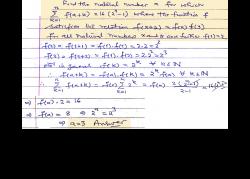 Find the natural number a for which
n
Σ f(a+k) = 16(2ⁿ-1) where the function f
k=1
satisfies the relation f(x+y) = f(x) f(y)
for all natural numbers x and y and f(1) = 2
f(2) = f(1+1) = f(1).f(1) = 2.2 = 2²
f(3) = f(2+1) = f(2).f(1) = 2².2 = 2³
In general f(k) = 2ᵏ ∀ k∈N
∴ f(a+k) = f(a).f(k) = 2ᵏ f(a) ∀ k∈N
Σ f(a+k) = f(a) Σ 2ᵏ = f(a). 2(2ⁿ-1)
⇒ f(a).2 = 16
⇒ f(a) = 8 ⇒ 2ᵃ = 2³
⇒ a=3 Answer